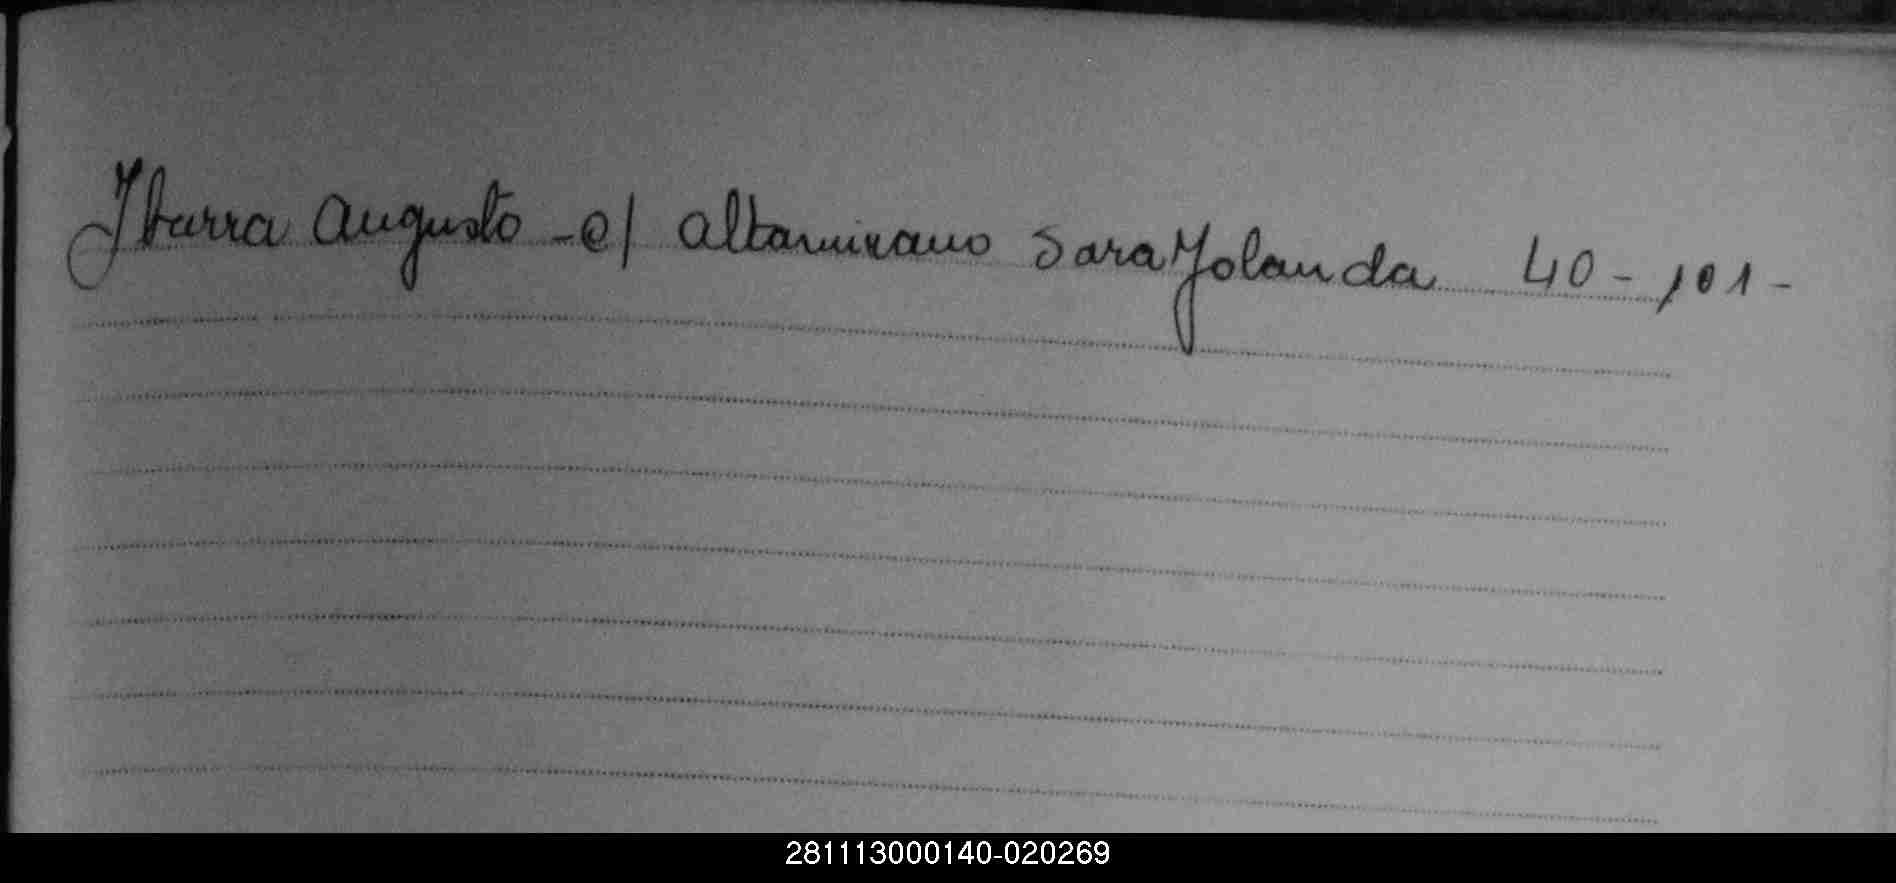 Ibarra Augusto - c/ Altamirano Sara Yolanda 40 - 101 -
281113000140-020269